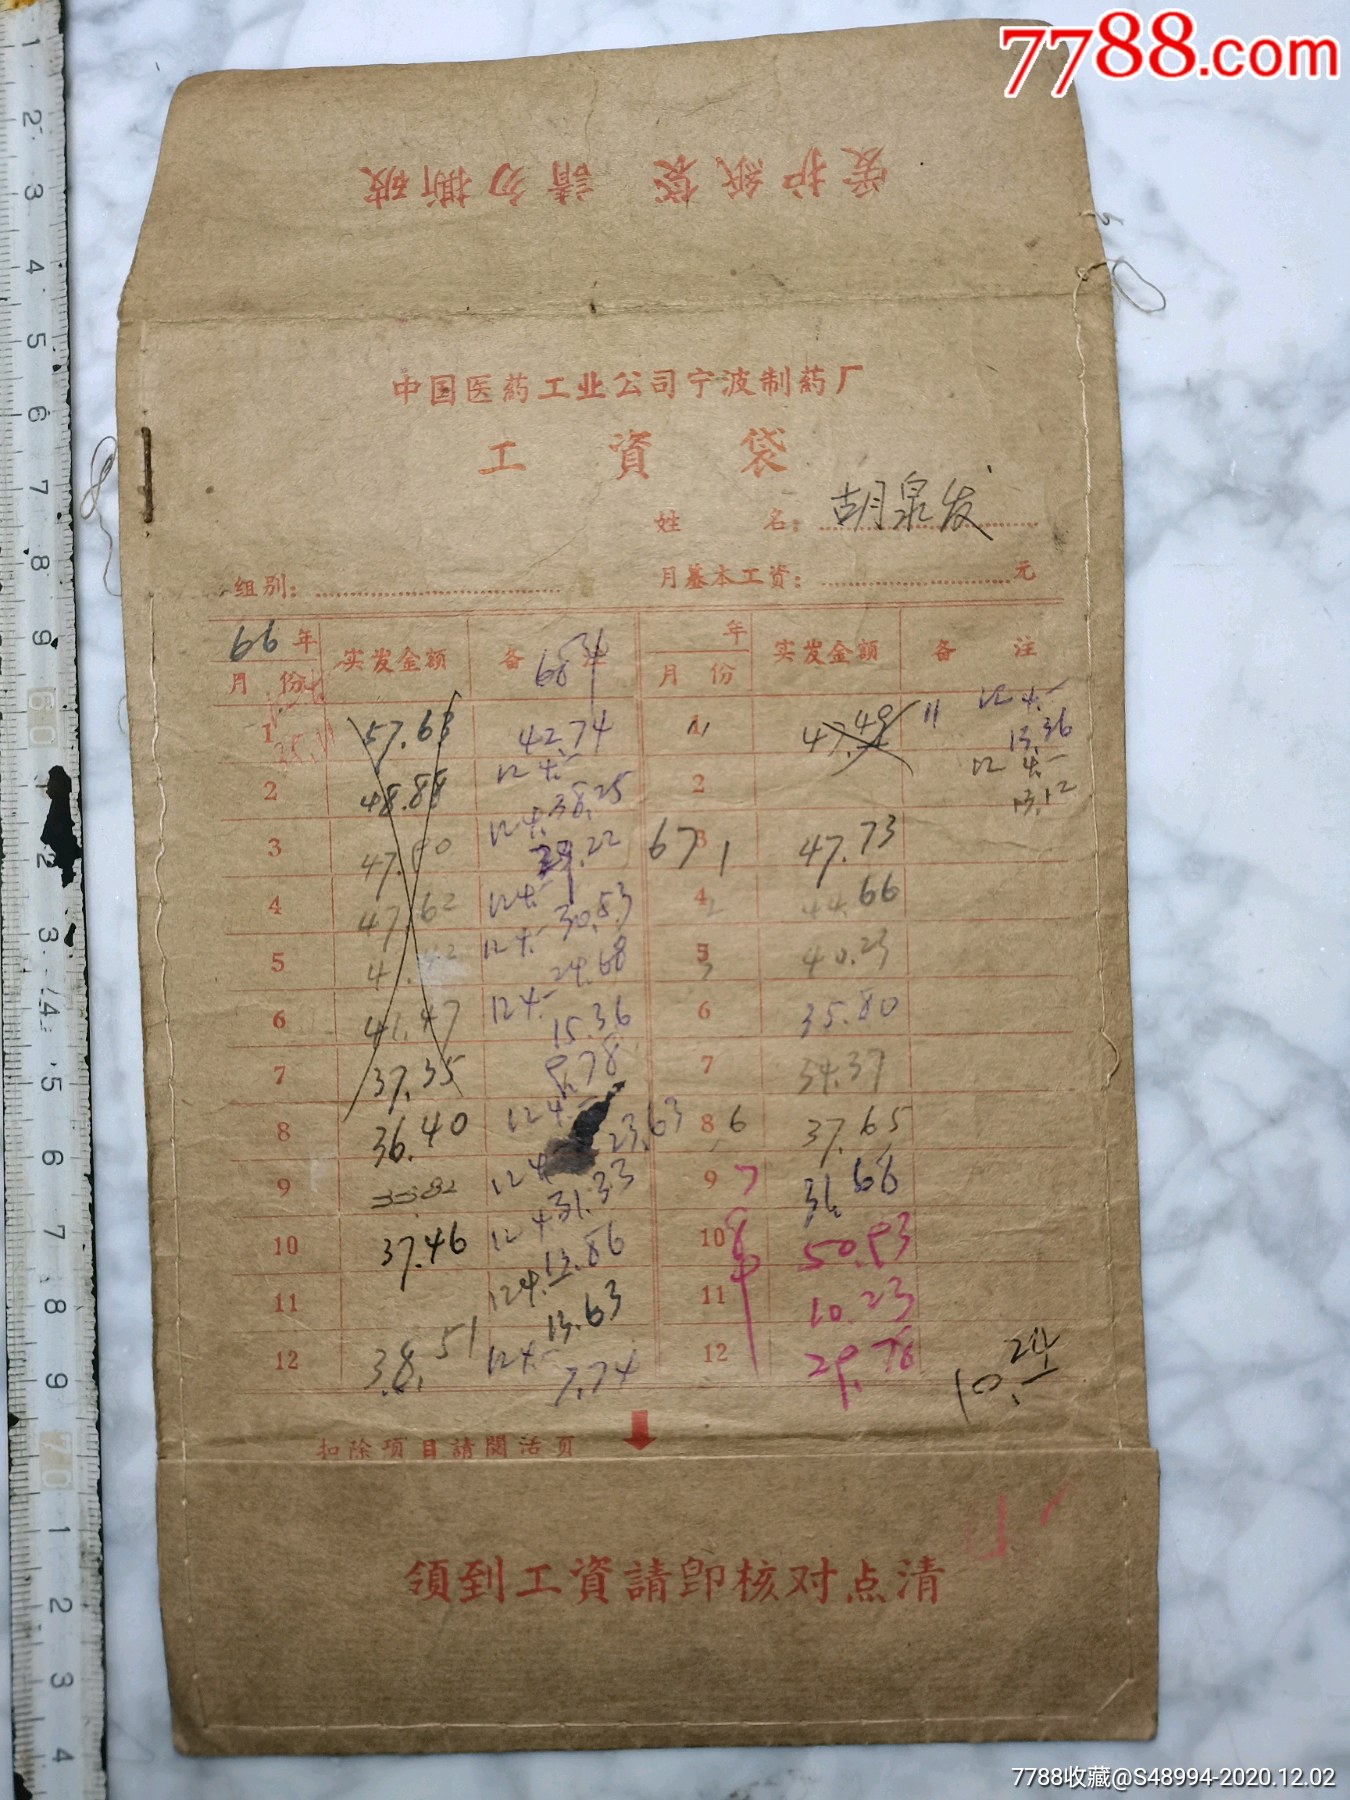 7788.com
爱护紙袋 請勿撕破
中国医药工业公司宁波制药厂
工資袋
姓名: 胡泉发
组别: 月基本工资: 元
66年 实发金额 备注 年 实发金额 备注
月份 68 月份
1 57.63 42.74 11 47.49 11 124.-
13.36
2 48.88 124.- 38.25 2 124.-
13.12
3 47.80 124. 39.22 67 1 47.73
4 47.62 124.- 30.53 4 2 44.66
5 124.- 24.68 5 3 40.23
6 41.47 124.- 15.36 6 35.80
7 37.35 7 34.37
8 36.40 124.- 23.63 8 6 37.65
9 35.82 124 31.33 9 7 31.66
10 37.46 124 13.86 10 8 50.93
11 124. 13.63 11 10.23
12 38.51 124.- 7.74 12 29.78
10.24
扣除项目請閱活页
領到工資請即核对点清
7788收藏@S48994-2020.12.02